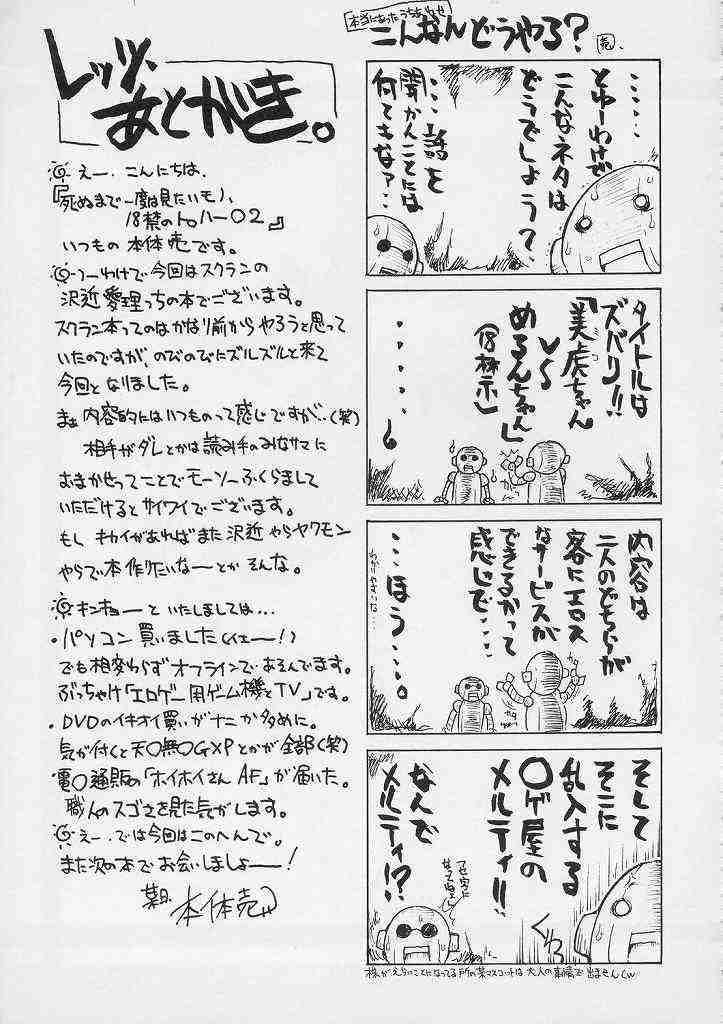 レッツ、
あとがき。
えー、こんにちは、
『死ぬまで一度は見たいモノ、
18禁のトゥハー02』
いつもの 本体売です。
つーわけで今回はスクランの
沢近愛理っちの本でございます。
スクラン本ってのはかなり前からやろうと思って
いたのですが、のびのびにズルズルと来て
今回となりました。
まぁ内容的にはいつものって感じですが…(笑)
相手がダレとかは読み手のみなサマに
おまかせってことでモーソーふくらまして
いただけるとサイワイでございます。
もし キカイがあればまた沢近やらヤクモン
やらで本作りたいなーとか そんな。
キンキョーといたしましては…
・パソコン買いました(イェー!)
でも相変わらずオフラインであそんでます。
ぶっちゃけ「エロゲー用ゲーム機とTV」です。
・DVDのイキオイ買いがナニか多めに。
気が付くと天〇無〇GXPとかが全部(笑)
・電〇通販の「ホイホイさんAF」が届いた。
職人のスゴさを見た気がします。
えー、では今回はこのへんで。
また次の本でお会いしましょー!
本体売
本当にあったうちあわせ
こんなんどうやろ?
売.
・・・・・
とゆーわけで
こんなネタは
どうでしょう?
・・・話を
聞かんことには
何てもなァ・・・
タイトルは
ズバリ!!
「美虎ちゃん
VS
めるんちゃん」
(18禁示)
・・・・・・
内容は
二人のどちらが
客にエロス
なサービスが
できるかって
感じで・・・・
・・・ほう・・・・。
わかりやすいな…
そして
そこに
乱入する
〇ゲ屋の
メルティ!!
なんで
メルティ!?
フセ字に
なってねぇし
くわっ
株がえらいことになってる所の某マスコットは大人の事情で出ませんw